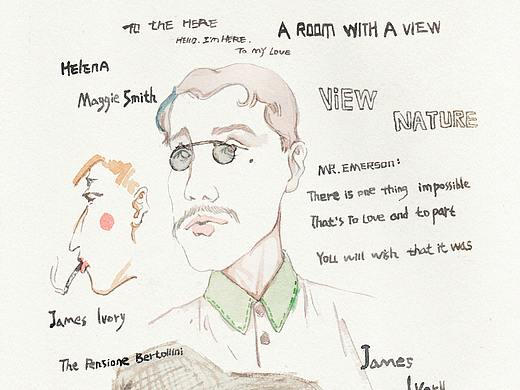 TO THE HERE
HELLO. I'M HERE.
TO MY LOVE
A ROOM WITH A VIEW
HELENA
Maggie Smith
ViEW
NATURE
MR. EMERSON:
There is one thing impossible
That's To Love and to part
You will wish that it was
James Ivory
The Pensione Bertollini
James
Ivory